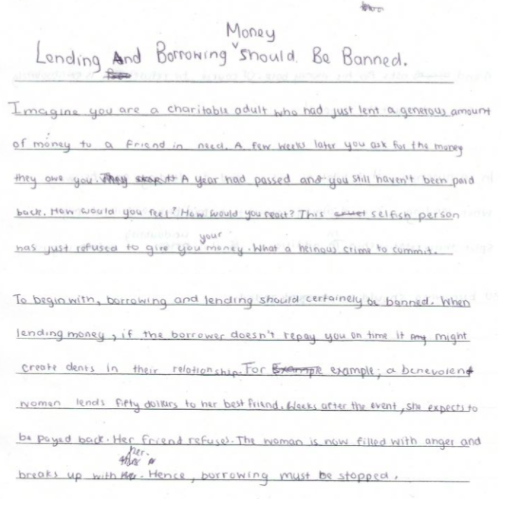 Money
Lending And Borrowing ^ Should Be Banned.
Imagine you are a charitable adult who had just lent a generous amount
of money to a friend in need. A few weeks later you ask for the money
they owe you. A year had passed and you still haven't been paid
back. How would you feel? How would you react? This selfish person
your
has just refused to give you money. What a heinous crime to commit.
To begin with, borrowing and lending should certainely be banned. When
lending money, if the borrower doesn't repay you on time it might
create dents in their relationship. For example; a benevolent
woman lends fifty dollars to her best friend. Weeks after the event, she expects to
be payed back. Her friend refuses. The woman is now filled with anger and
her.
breaks up with. Hence, borrowing must be stopped.